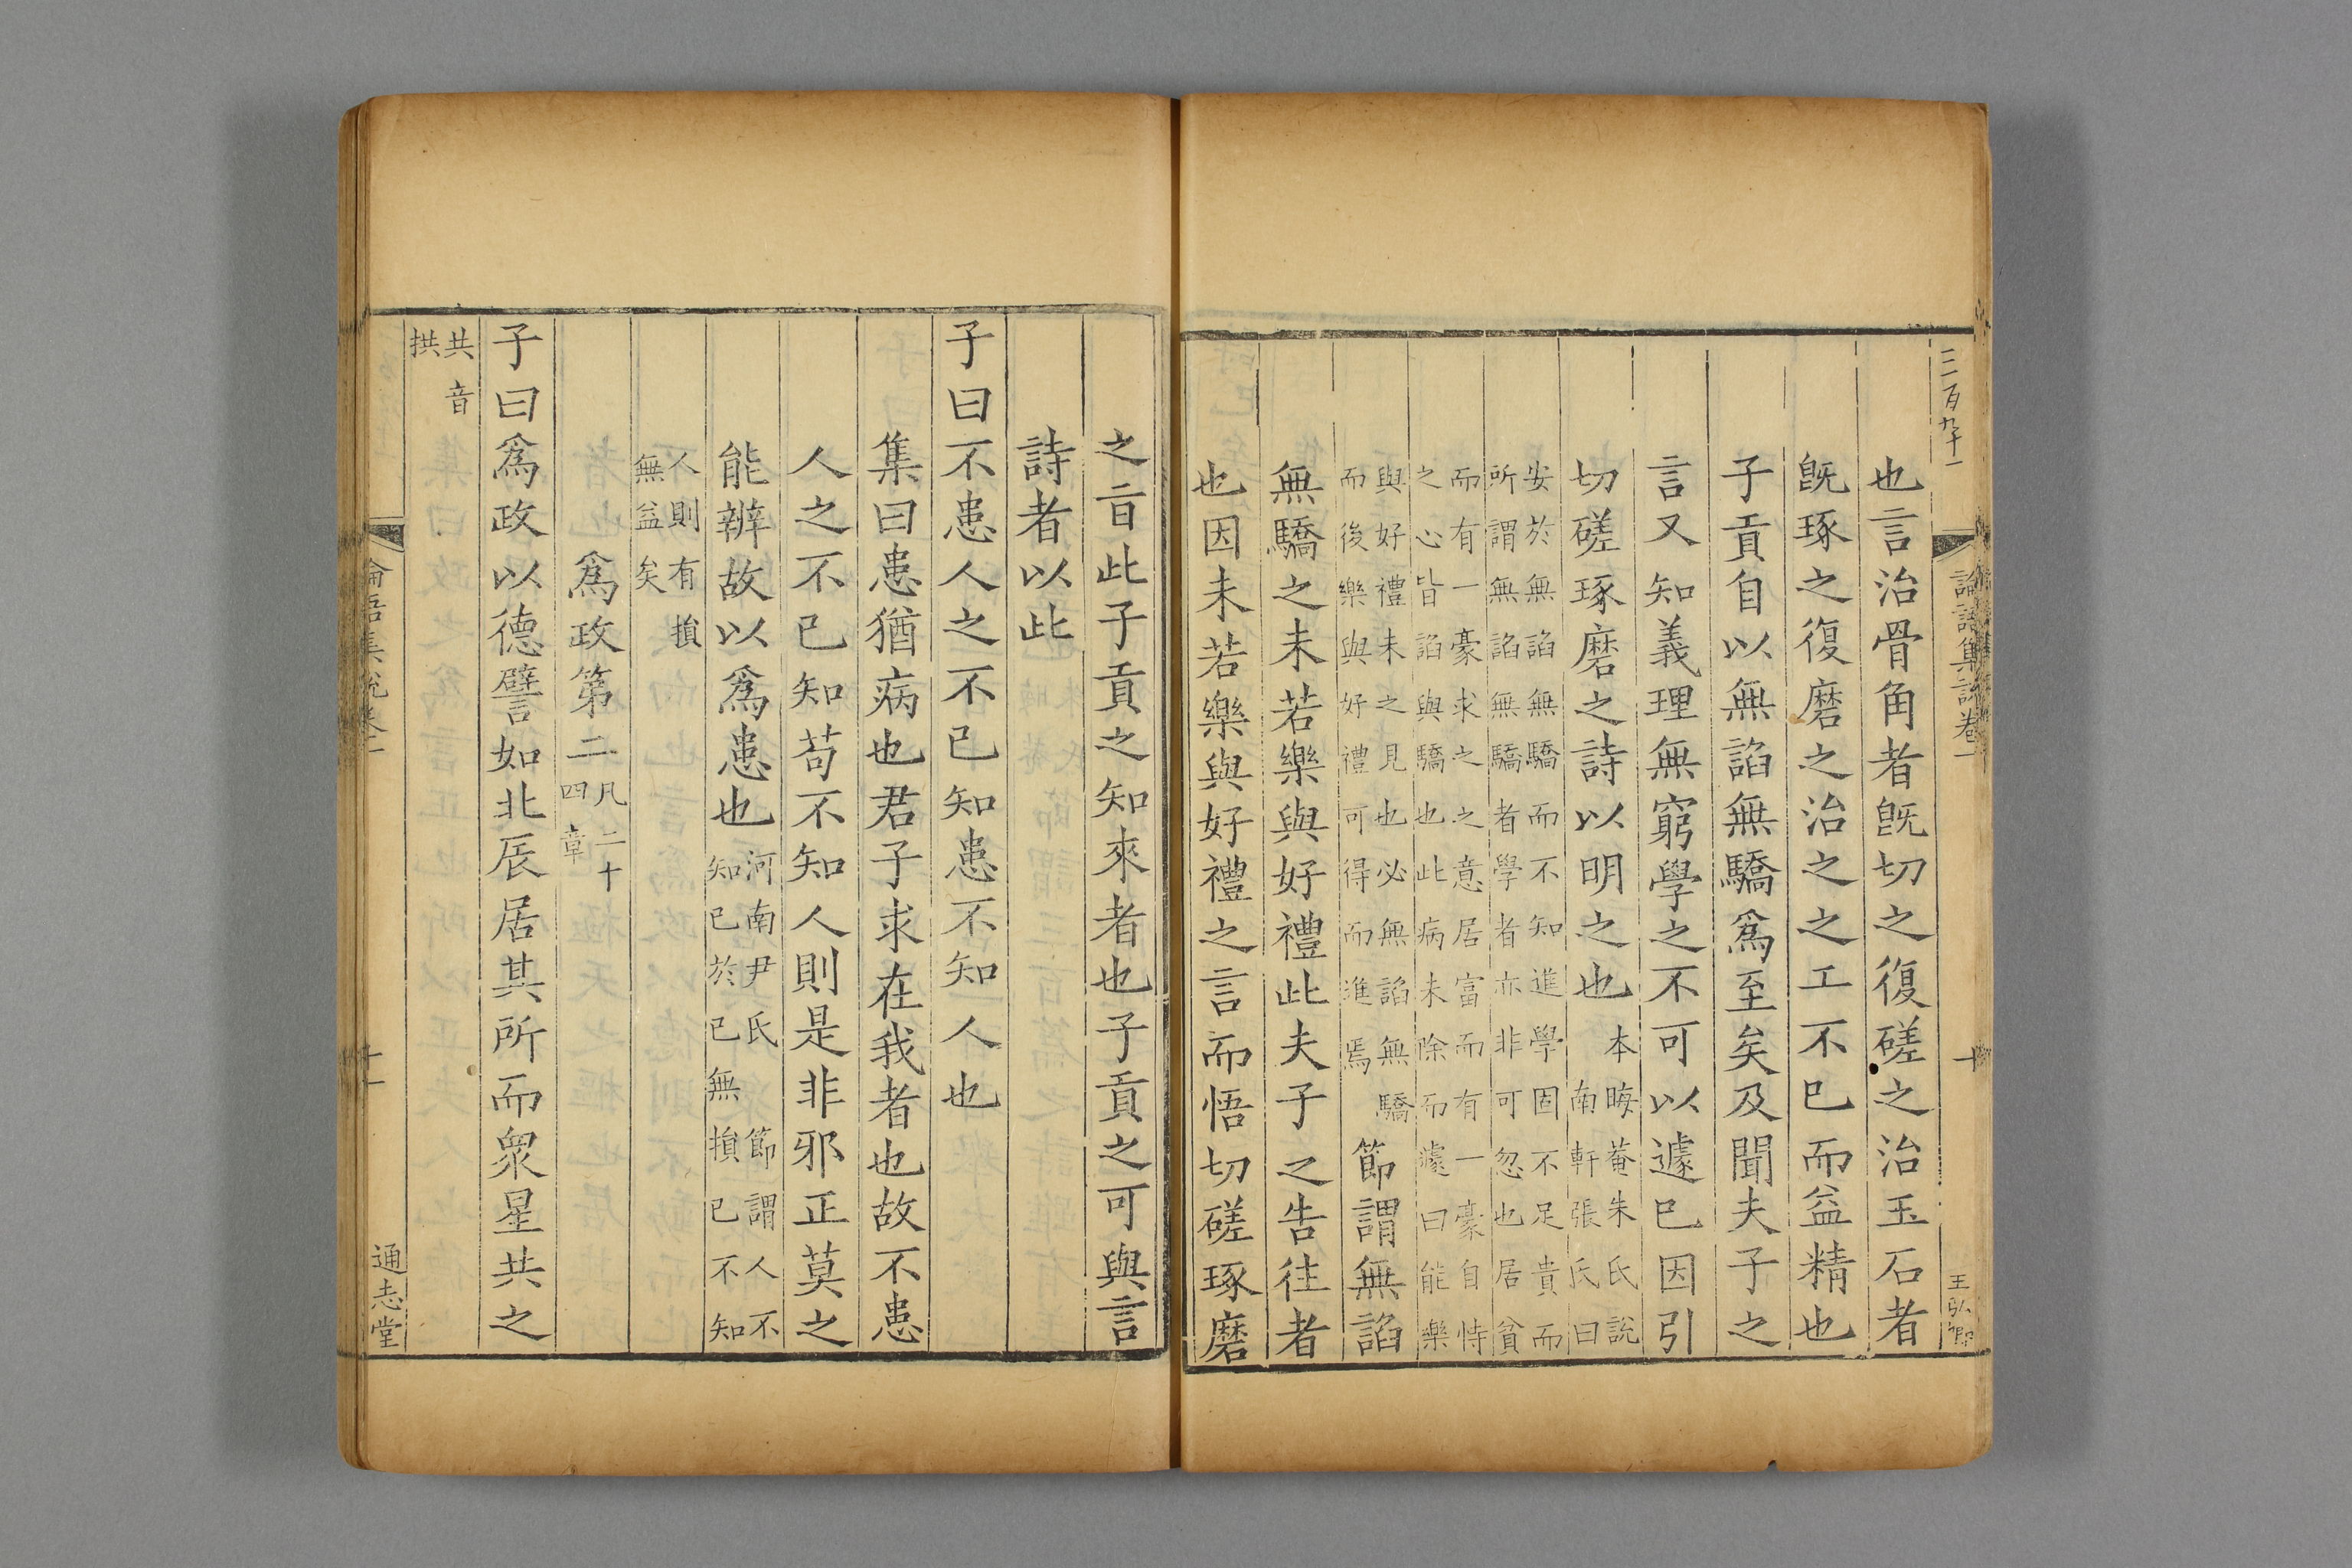 三百九十一
論語集說卷一
十
王弘卿
也言治骨角者旣切之復磋之治玉石者
旣琢之復磨之治之之工不已而益精也
子貢自以無諂無驕爲至矣及聞夫子之
言又知義理無窮學之不可以遽已因引
切磋琢磨之詩以明之也本晦菴朱氏說
南軒張氏曰
安於無諂無驕而不知進學固不足貴而
所謂無諂無驕者學者亦非可忽也居貧
而有一豪求之之意居富而有一豪自恃
之心皆諂與驕也此病未除而遽曰能樂
與好禮未之見也必無諂無驕
而後樂與好禮可得而進焉
節謂無諂
無驕之未若樂與好禮此夫子之告往者
也因未若樂與好禮之言而悟切磋琢磨
之旨此子貢之知來者也子貢之可與言
詩者以此
子曰不患人之不已知患不知人也
集曰患猶病也君子求在我者也故不患
人之不已知苟不知人則是非邪正莫之
能辨故以爲患也河南尹氏
知已於已無損已不知
節謂人不
人則有損
無益矣
爲政第二凡二十
四章
子曰爲政以德譬如北辰居其所而衆星共之
共音
拱
論語集說卷一
十一
通志堂